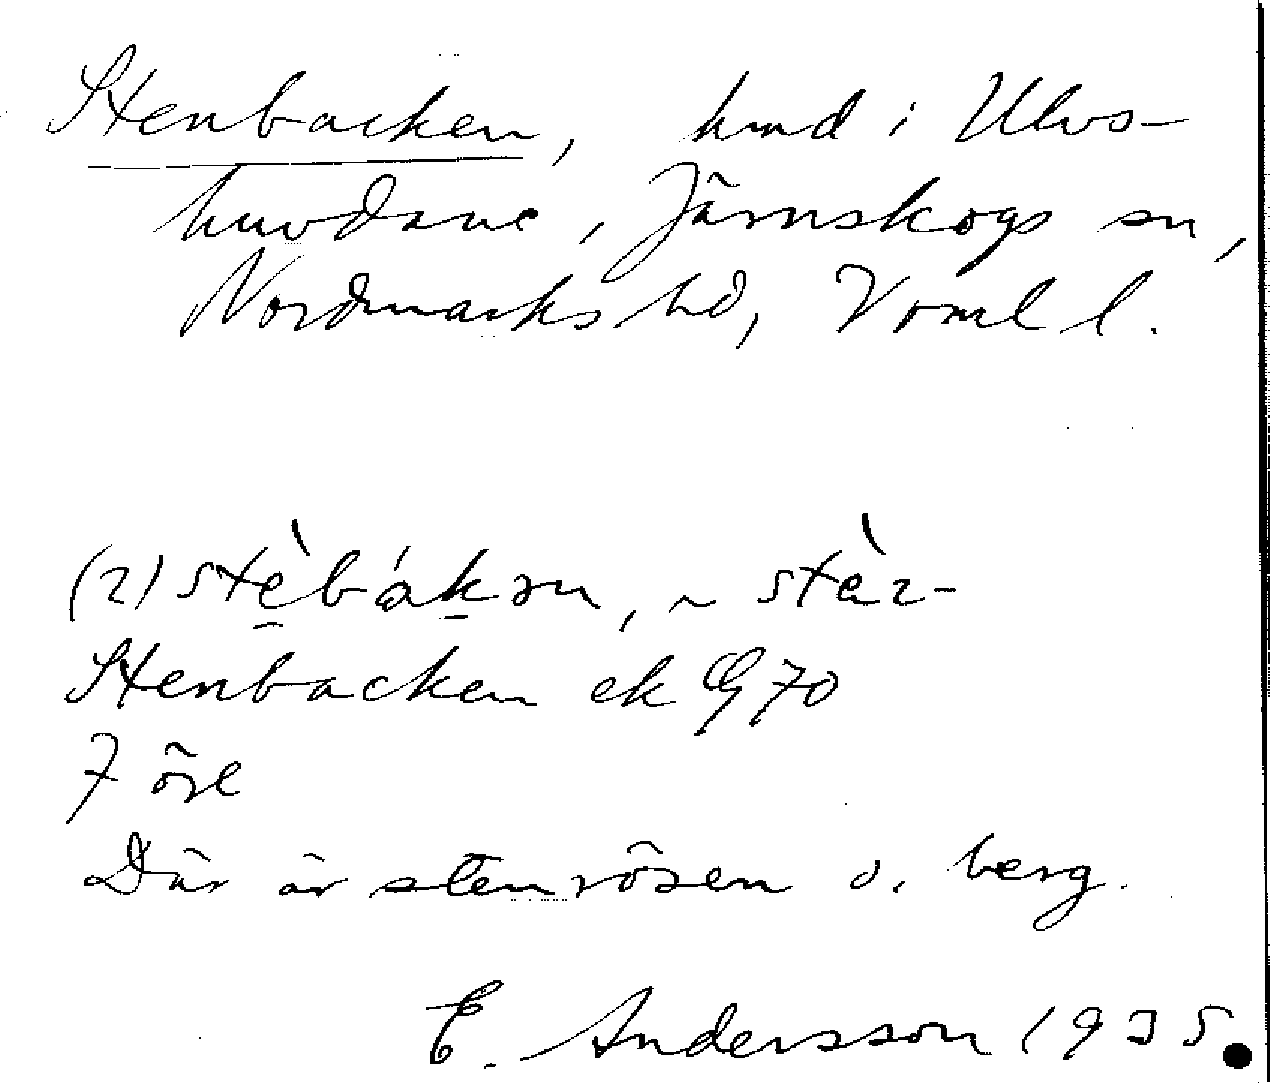 Stenbacken, hmd i Ulvs-
huvdane, Järnskogs sn,
Nordmarks hd, Vrml l.
(2) stèbákən, ~ stèz-
Stenbacken ek G 70
7 öre
Där är stenrösen o. berg.
E. Andersson 1935.